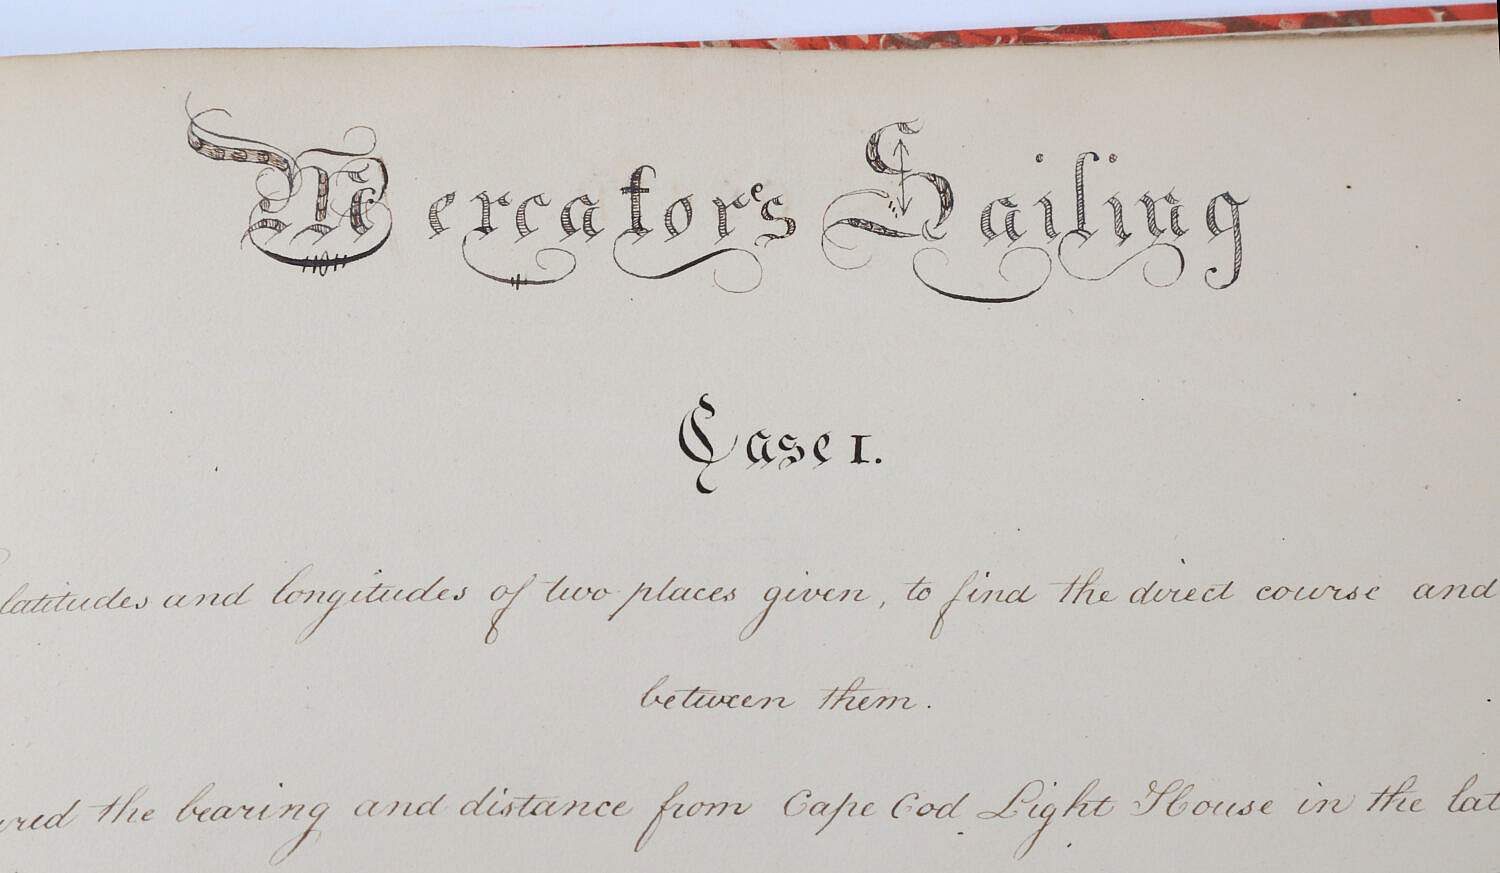 Mercator's Sailing
Case 1.
latitudes and longitudes of two places given, to find the direct course and
between them.
the bearing and distance from Cape Cod Light House in the lat